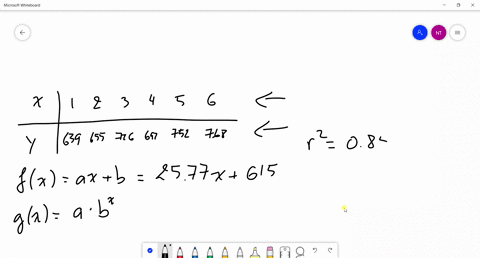 Microsoft Whiteboard
NT
X 1 2 3 4 5 6
Y 639 655 726 752 768
r² = 0.8
f(x) = ax + b = 25.77x + 615
g(x) = a · bˣ